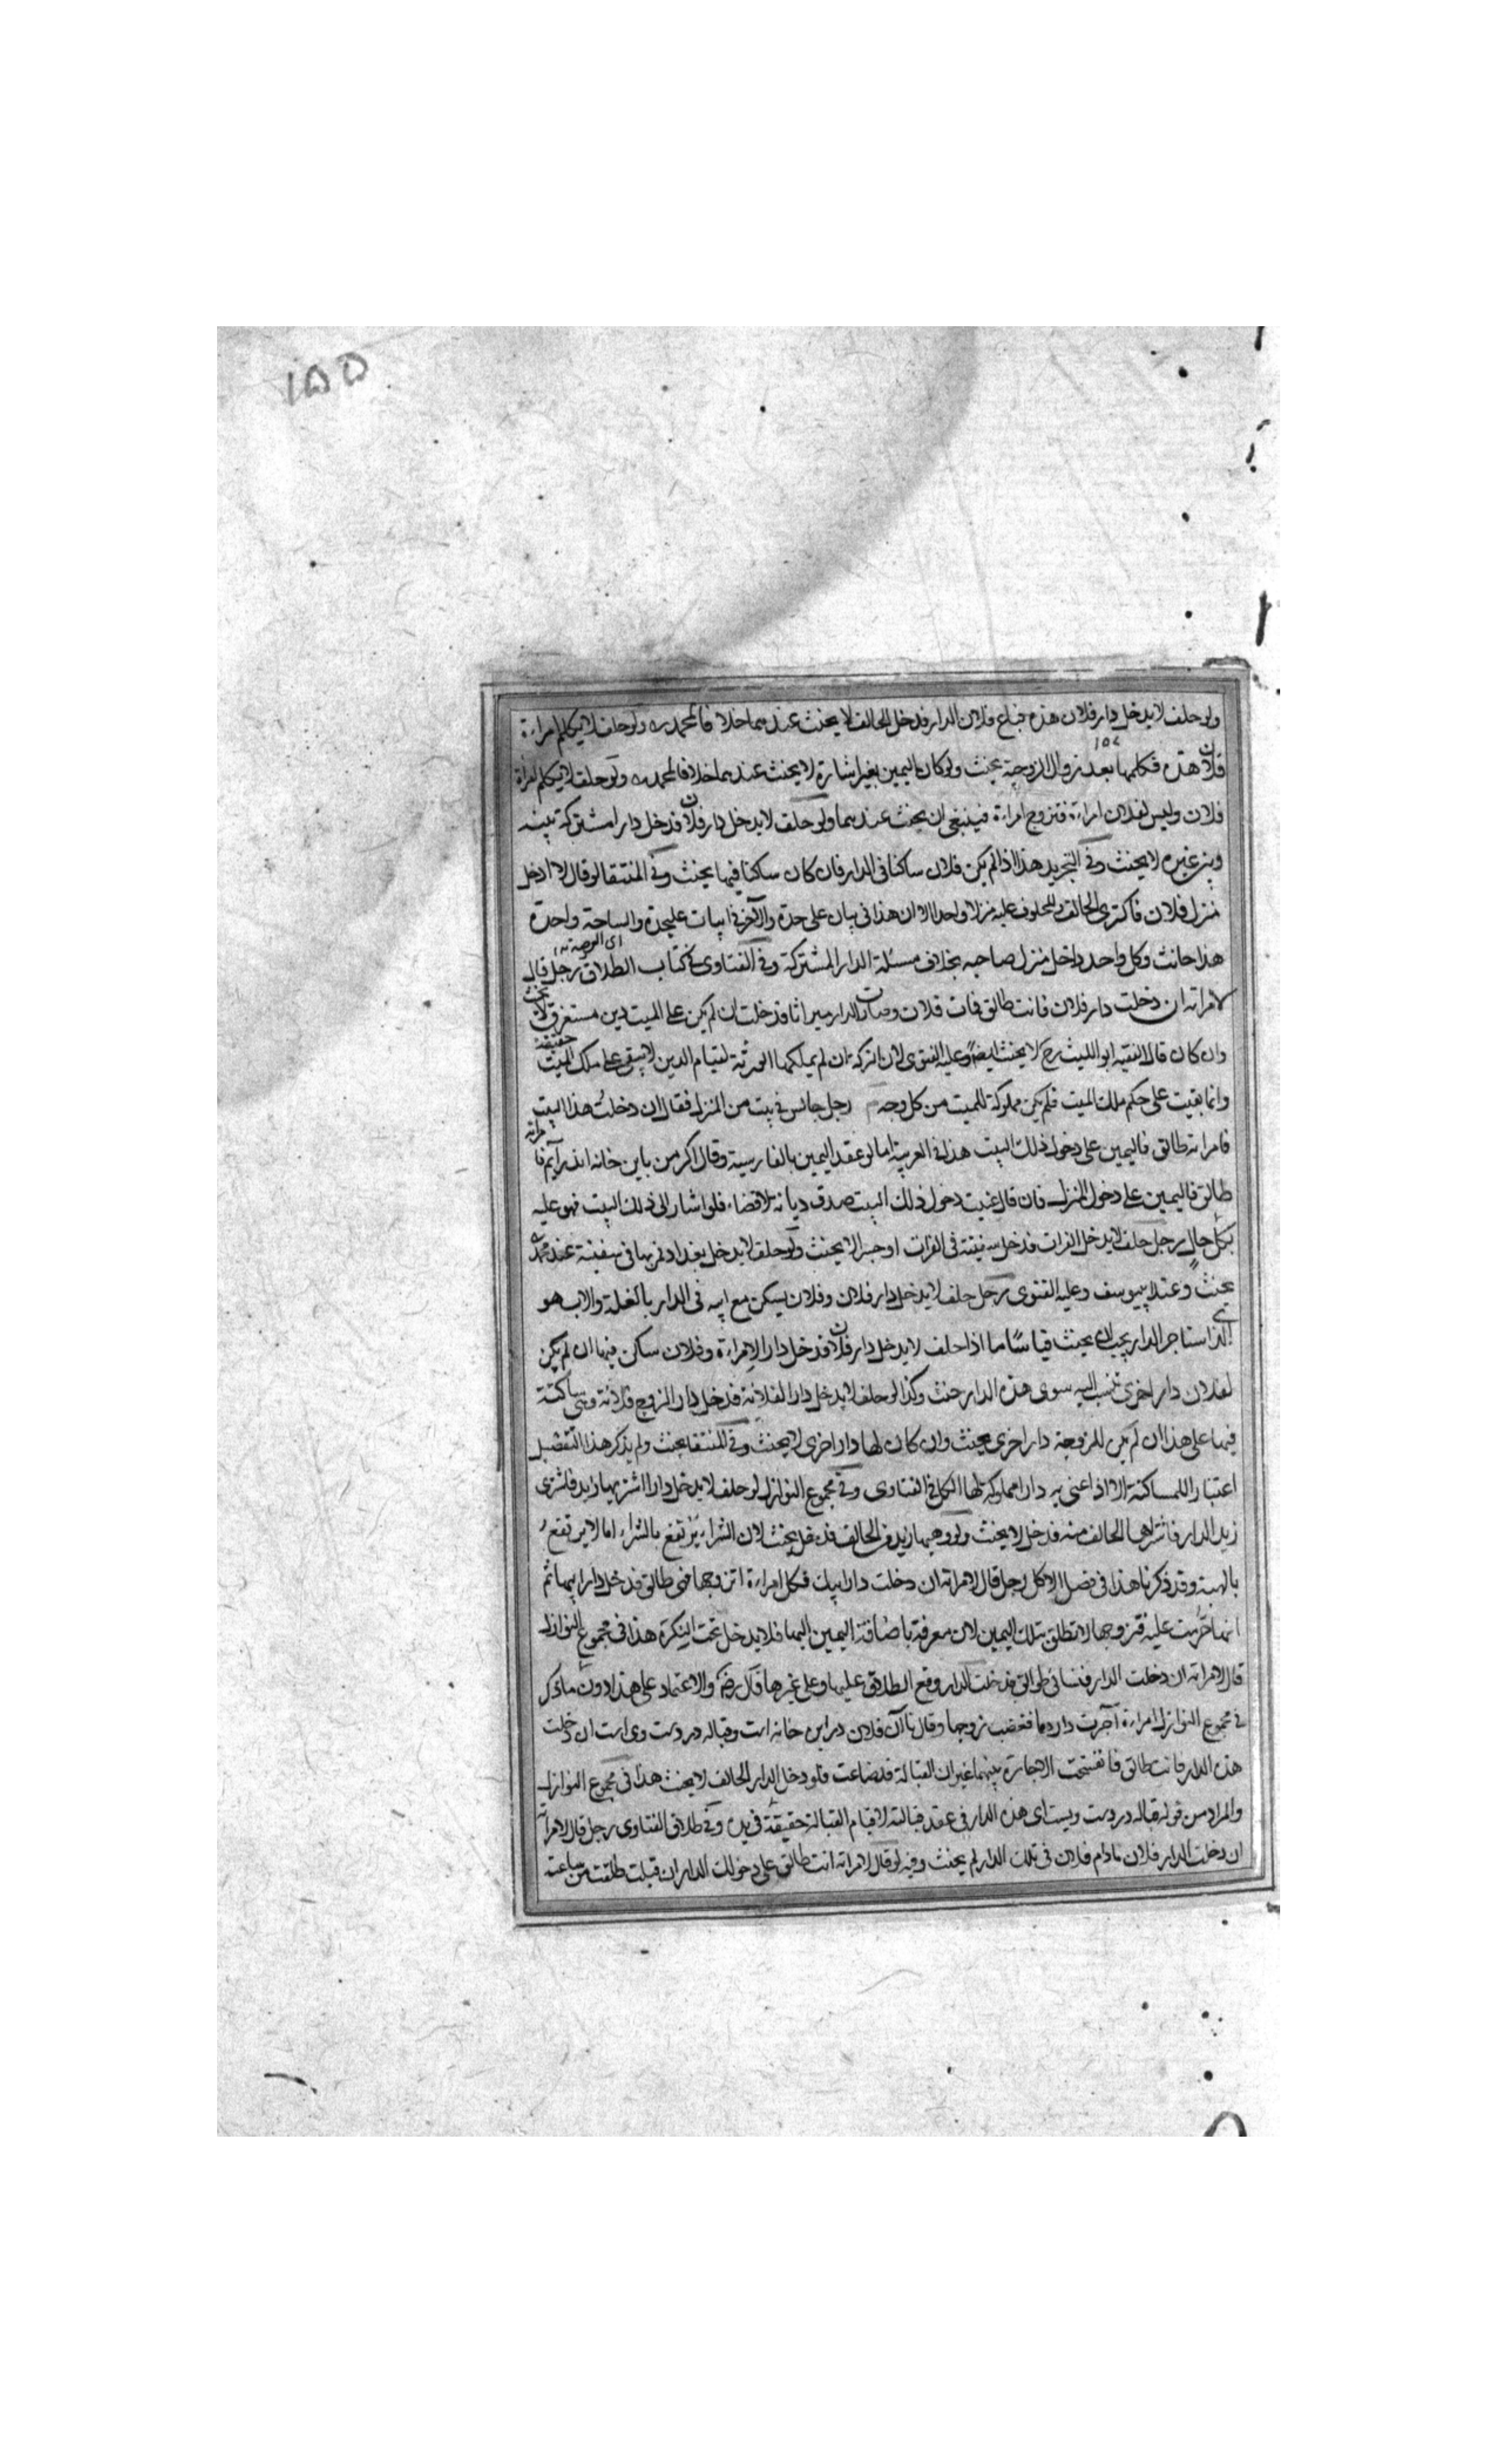 ١٥٥
ولو حلف لا يدخل دار فلان هذه فباع فلان الدار فدخل الحالف لا يحنث عندهما خلافا لمحمد ره ولو حلف لا يكلم امراءة
فلان هذه فكلمها بعد زوال الزوجية يحنث ولو كان اليمين بغير اشارة لا يحنث عندهما خلافا لمحمد ره ولو حلف لا يكلم امراة
فلان وليس لفلان امراءة فتزوج امراءة فينبغي ان يحنث عندهما ولو حلف لا يدخل دار فلان فدخل دارا مشتركة بينه
وبين غيره لا يحنث وفي التجريد هذا اذا لم يكن فلان ساكنا في الدار فان كان ساكنا فيها يحنث وفي المنتقا لو قال لا ادخل
منزل فلان فاكترى الحالف والمحلوف عليه منزلا واحدا الا ان هذا في بيان على حدة والآخر في ابيات عليحدة والساحة واحدة
اى العرصة
هذا حانث وكل واحد داخل منزل صاحبه بخلاف مسئلة الدار المشتركة وفي الفتاوى في كتاب الطلاق رجل قال
لامراته ان دخلت دار فلان فانت طالق فمات فلان وصارت الدار ميراثا فدخلت ان لم يكن على الميت دين مستغرق لا يحنث
وان كان قال الفقيه ابو الليث رح لا يحنث ايضا وعليه الفتوى لان التركة ان لم يملكها الورثة لقيام الدين لا يبقى على ملك الميت حقيقة
وانما بقيت على حكم ملك الميت فلم يكن مملوكة للميت من كل وجه رجل جالس في بيت من المنزل فقال ان دخلت هذا البيت
فامراته طالق فاليمين على دخول ذلك البيت هذا في العربية اما لو عقد اليمين بالفارسية وقال اكر من باين خانه اندر آيم فامراته
طالق فاليمين على دخول المنزل فان قال عنيت دخول ذلك البيت صدق ديانة لا قضاء فلو اشار الى ذلك البيت فهو عليه
بكل حال رجل حلف لا يدخل الفرات فدخل سفينة في الفرات او جسرا لا يحنث ولو حلف لا يدخل بغداد فمر بها في سفينة عند محمد
يحنث وعند ابييوسف وعليه الفتوى رجل حلف لا يدخل دار فلان وفلان يسكن مع ابيه في الدار بالغلة والاب هو
الذى استاجر الدار يجب ان يحنث قياسا ما اذا حلف لا يدخل دار فلان فدخل دار الامراءة وفلان ساكن فيها ان لم يكن
لفلان دار اخرى تنسب اليه سوى هذه الدار حنث وكذا لو حلف لا يدخل دار الفلانة فدخل دار الزوج فلانة وهي ساكنة
فيها على هذا ان لم يكن للزوجة دار اخرى يحنث وان كان لها دار اخرى لا يحنث وفي المنتقا يحنث ولم يذكر هذا التفصيل
اعتبارا للمساكنة الا اذا عنى به دارا مملوكة لها الكل في الفتاوى وفي مجموع النوازل لو حلف لا يدخل دارا اشتريها زيد فاشترى
زيد الدار فاشتراها الحالف منه فدخل لا يحنث ولو وهبها زيد من الحالف فدخل يحنث لان الشراء يرتفع بالشراء اما لا يرتفع
بالهبة وقد ذكرنا هذا في فصل الاكل رجل قال لامراته ان دخلت دار ابيك فكل امراءة اتزوجها فهي طالق فدخل دار ابيها ثم
انها حرمت عليه فتزوجها لا تطلق بتلك اليمين لان معرفة باضافة اليمين اليها فلا يدخل تحت النكرة هذا في مجموع النوازل
قال لامراته ان دخلت الدار فنسائي طوالق فدخلت الدار وقع الطلاق عليها وعلى غيرها قال رض والاعتماد على هذا دون ما ذكر
في مجموع النوازل امراءة آجرت دارها فغضب زوجها وقال تا آن فلان در اين خانه است وقباله در دست وى است ان دخلت
هذه الدار فانت طالق فانفسخت الاجارة بينهما غير ان القبالة قد ضاعت فلو دخل الدار الحالف لا يحنث هذا في مجموع النوازل
والمراد من قوله قباله در دست ويست اى هذه الدار في عقد قبالته لا قيام القبالة حقيقة في يده وفي طلاق الفتاوى رجل قال لامرأته
ان دخلت الدار فلان ما دام فلان في تلك الدار لم يحنث وفيه لو قال لامراته انت طالق على دخولك الدار ان قبلت طلقت من ساعته